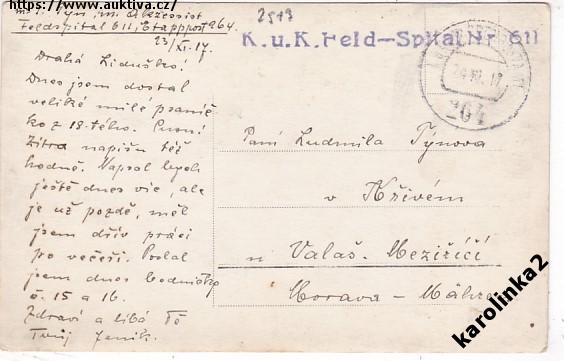 https://www.auktiva.cz/
Feldspital 611, Etappenpost 264
23/XI. 17.
2517
K.u.K. Feld-Spital Nr. 611
264
Drahá Liduško!
Dnes jsem dostal
veliké milé psaníč
ko z 18. tého.
Zítra napíšu též
hodně. Napsal bych
ještě dnes víc, ale
je už pozdě, měl
jsem dřív práci
po večeři. Poslal
jsem dnes
č. 15 a 16.
Zdraví a líbá Tě
Tvůj Jeník.
Paní Ludmila Týnova
v Křivém
u Valaš. Meziříčí
Morava - Mähren
karolinka2